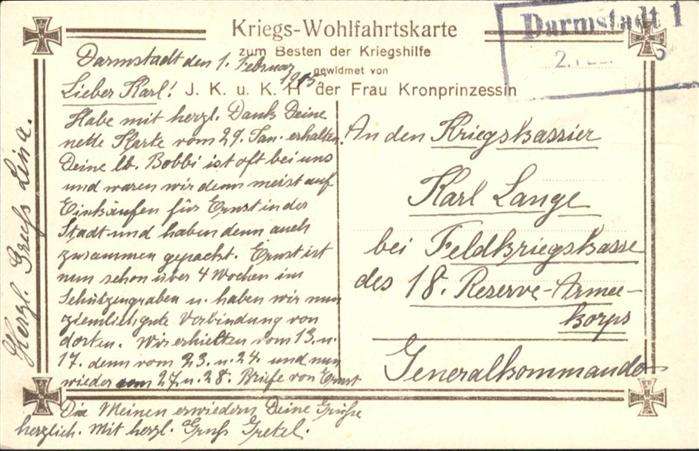 Kriegs-Wohlfahrtskarte
zum Besten der Kriegshilfe
gewidmet von
J. K. u. K. H. der Frau Kronprinzessin
Darmstadt 1
2.
Darmstadt den 1. Februar
1915.
Lieber Karl!
Habe mit herzl. Dank Deine
nette Karte vom 29. Jan. erhalten.
Deine lb. Bobbi ist oft bei uns
und waren wir denn meist auf
Einkäufen für Ernst in der
Stadt und haben denn auch
zusammen gepackt. Ernst ist
nun schon über 4 Wochen im
Schützengraben u. haben wir nun
ziemlich gute Verbindung von
dorten. Wir erhielten vom 13. u.
17. denn vom 23. u. 24. und nun
wieder vom 27. u. 28. Briefe von Ernst
Die Meinen erwiedern Deine Grüße
herzlich. Mit herzl. Gruß Gretel.
Herzl. Gruß Lina.
An den Kriegskassier
Karl Lange
bei Feldkriegskasse
des 18. Reserve-Armee-
korps
Generalkommando